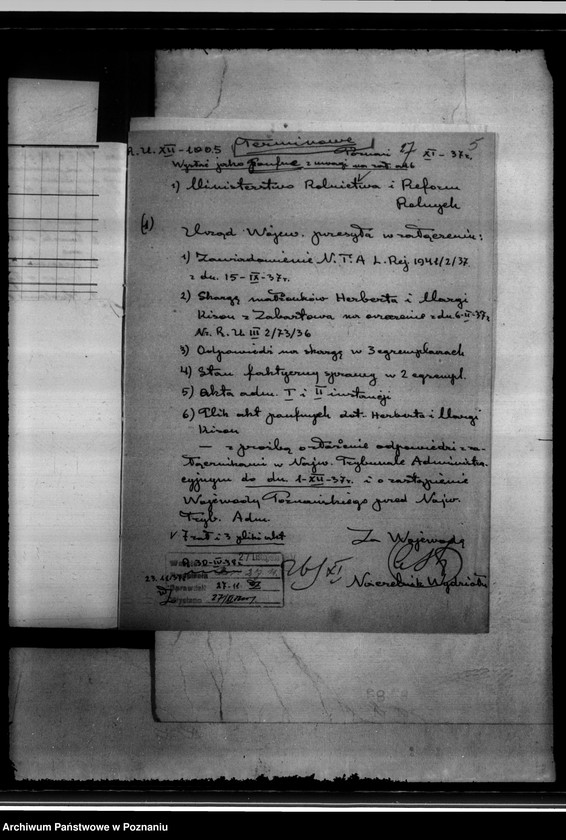 Terminowe 5
R.U. XII - 1005 Poznań 27 XI - 37 r.
Wysłać jako poufne z uwagi na zał. akt
1) Ministerstwo Rolnictwa i Reform
Rolnych
(1)
Urząd Wojew. przesyła w załączeniu:
1) Zawiadomienie N.T.A L. Rej 1941/2/37
z dn. 15-IX-37r.
2) Skargę małżonków Herberta i Margi
z Zabartowa na orzeczenie z dn. 6-II-37r
Nr. R.U. III 2/73/36
3) Odpowiedzi na skargę w 3 egzemplarzach
4) Stan faktyczny sprawy w 2 egzempl.
5) Akta adm. I i II instancji
6) Plik akt poufnych dot. Herberta i Margi
— z prośbą o złożenie odpowiedzi z za-
łącznikami w Najw. Trybunale Administra-
cyjnym do dn. 1-XII-37r. i o zastąpienie
Wojewody Poznańskiego przed Najw.
Tryb. Adm.
7 zał i 3 pliki akt
Za Wojewodę
26/XI
Naczelnik Wydziału
27.11
Archiwum Państwowe w Poznaniu